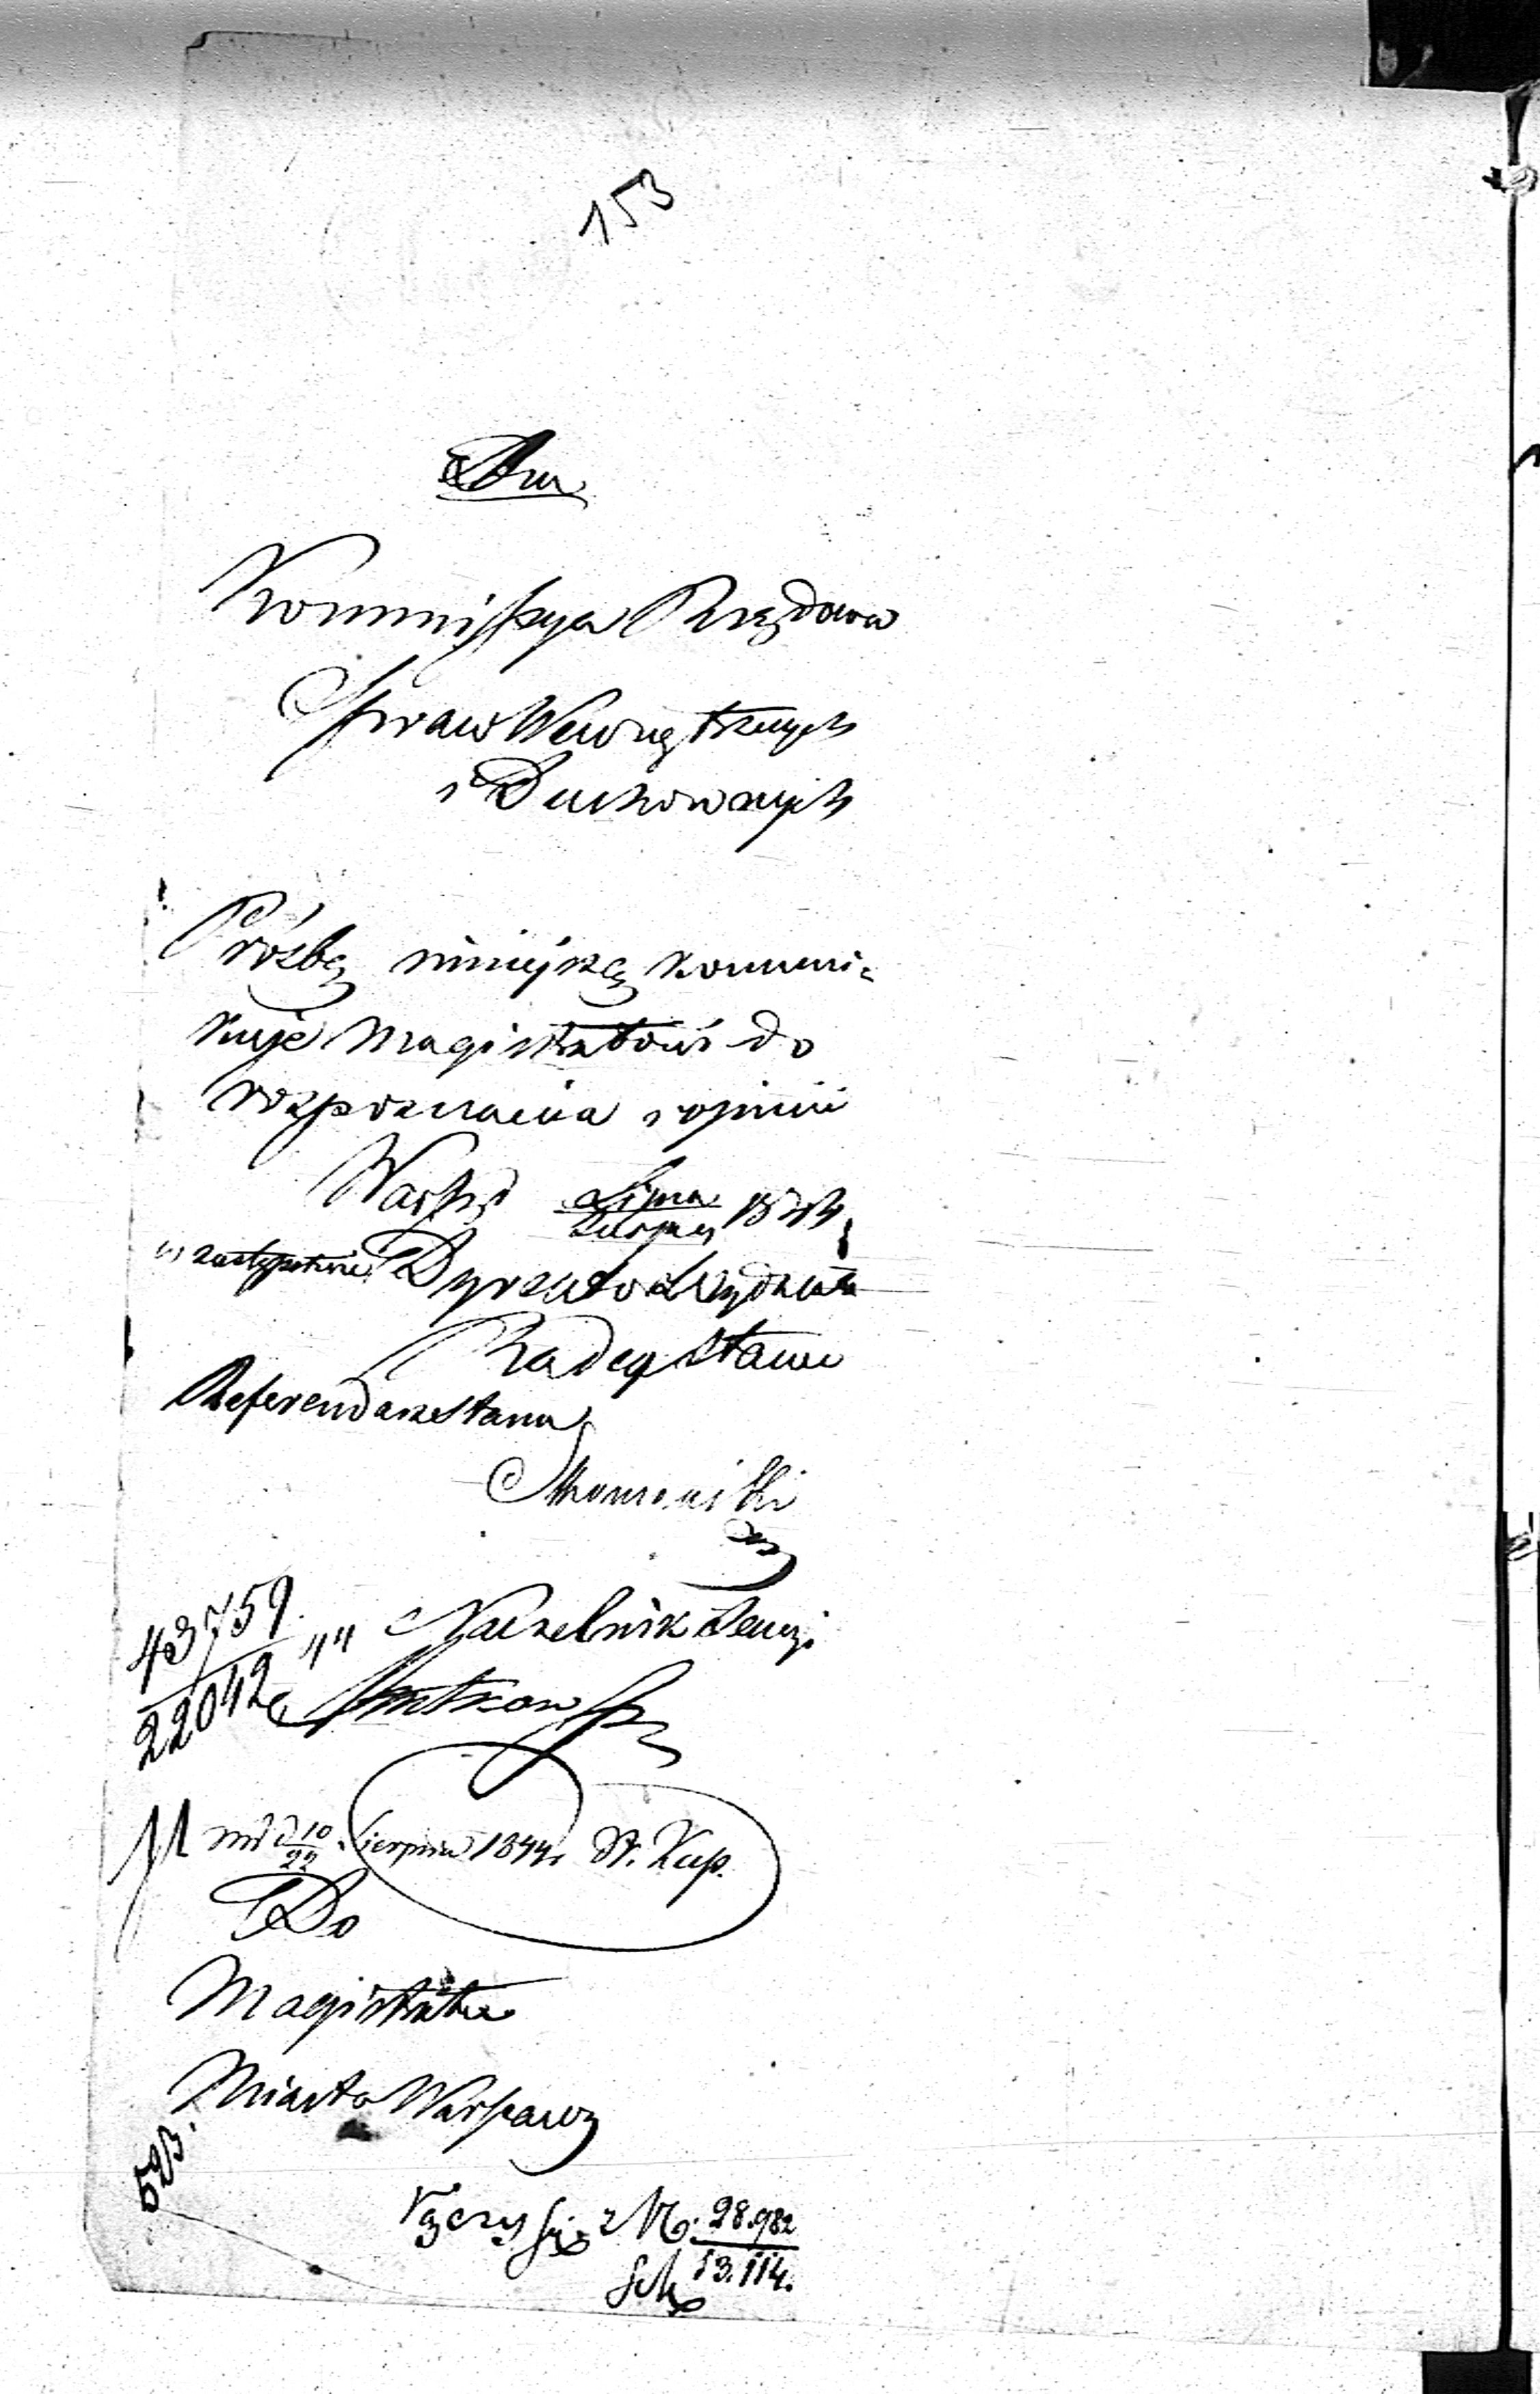 153
Kommissya Rządowa
Spraw Wewnętrznych
i Duchownych
Prośbę niniejszą kommuni=
kuje Magistratowi do
rozpoznania i opinii
Warsz d Lipca 1844
Sierpnia
w zastępstwie Dyrektora Wydziału
Radca Stanu
Referendarz Stanu
43759
22042
Naczelnik Sekcyi
d 10/22 Sierpnia 1844 r. St. Kap.
Do
Magistratu
Miasta Warszawy
523.
Łączy się z N. 28.982
13.114.